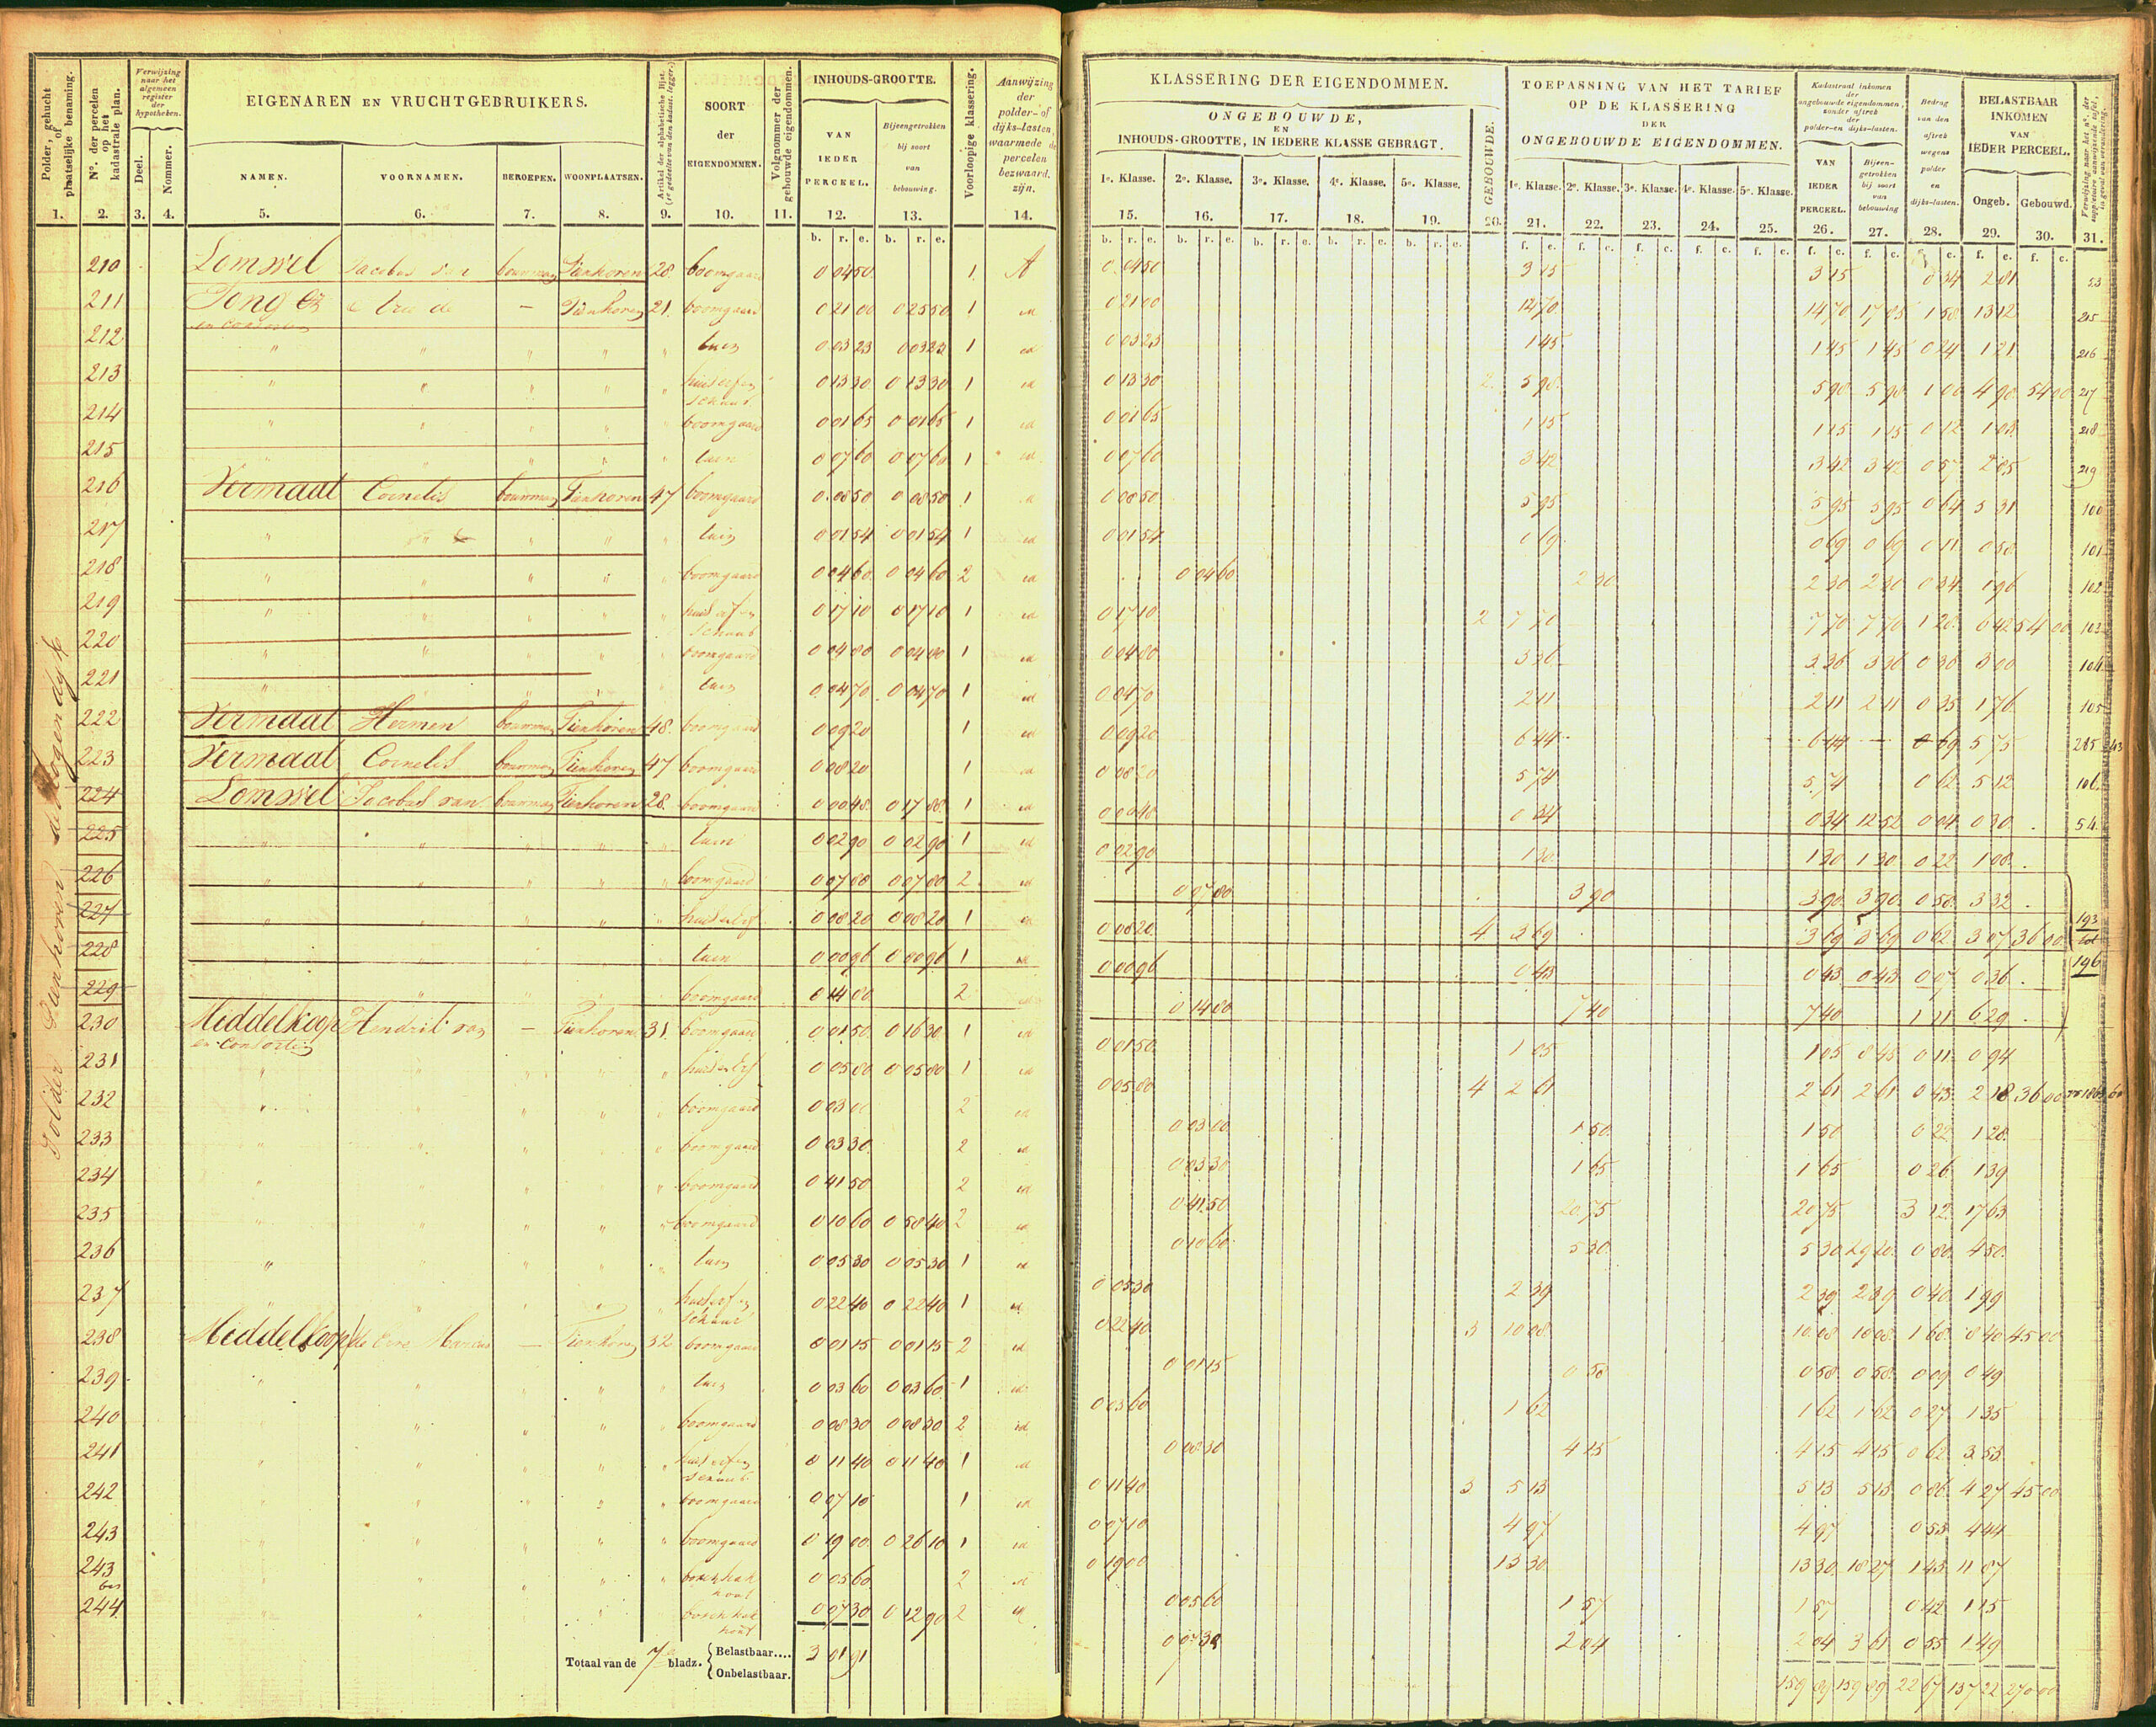 Polder, gehucht of plaatselijke benaming.
No. der percelen op het kadastrale plan.
Verwijzing naar het algemeen register der hypotheken.
Deel. Nommer.
EIGENAREN EN VRUCHTGEBRUIKERS.
NAMEN. VOORNAMEN. BEROEPEN. WOONPLAATSEN.
Artikel der alphabetische lijst.
SOORT der EIGENDOMMEN.
Volgnommer der gebouwde eigendommen.
INHOUDS-GROOTTE.
VAN IEDER PERCEEL.
Bijeengetrokken bij soort van bebouwing.
Voorloopige klassering.
Aanwijzing der polder- of dijks-lasten, waarmede de percelen bezwaard zijn.
KLASSERING DER EIGENDOMMEN.
ONGEBOUWDE,
EN
INHOUDS-GROOTTE, IN IEDERE KLASSE GEBRAGT.
1e. Klasse. 2e. Klasse. 3e. Klasse. 4e. Klasse. 5e. Klasse.
GEBOUWDE.
TOEPASSING VAN HET TARIEF
OP DE KLASSERING
DER
ONGEBOUWDE EIGENDOMMEN.
1e. Klasse. 2e. Klasse. 3e. Klasse. 4e. Klasse. 5e. Klasse.
Kadastraal inkomen der ongebouwde eigendommen, zonder aftrek der polder-en dijks-lasten.
VAN IEDER PERCEEL.
Bijeengetrokken bij soort van bebouwing
Bedrag van den aftrek wegens polder en dijks-lasten.
BELASTBAAR INKOMEN VAN IEDER PERCEEL.
Ongeb. Gebouwd.
1. 2. 3. 4. 5. 6. 7. 8. 9. 10. 11. 12. 13. 14. 15. 16. 17. 18. 19. 20. 21. 22. 23. 24. 25. 26. 27. 28. 29. 30. 31.
Polder Tienhoven de Hogendyk
210 Lomwel Jacobus van bouwman Tienhoven 28 boomgaard 0 04 50 1 A 0 04 50 3 15 3 15 0 34 2 81 53
211 Jong de Tienhoven 21. boomgaard 0 21 00 0 25 50 1 id 0 21 00 14 70 14 70 17 85 1 58 13 12 215
212 " " " " " tuin 0 03 23 0 03 23 1 id 0 03 23 1 45 1 45 1 45 0 24 1 21 216
213 " " " " " huis erf en schuur 0 13 30 0 13 30 1 id 0 13 30 2 5 98 5 98 5 98 1 00 4 98 54 00 217
214 " " " " " boomgaard 0 01 65 0 01 65 1 id 0 01 65 1 15 1 15 1 15 0 12 1 03 218
215 " " " " " tuin 0 07 60 0 07 60 1 id 0 07 60 3 42 3 42 3 42 0 57 2 85 219
216 Vermaat Cornelis bouwman Tienhoven 47 boomgaard 0 08 50 0 08 50 1 id 0 08 50 5 95 5 95 5 95 0 64 5 31 100
217 " " " " tuin 0 01 54 0 01 54 1 id 0 01 54 0 69 0 69 0 69 0 11 0 58 101
218 " " " " " boomgaard 0 04 60 0 04 60 2 id 0 04 60 2 30 2 30 2 30 0 34 1 96 102
219 " " " " " huis erf en schuur 0 17 10 0 17 10 1 id 0 17 10 2 7 70 7 70 7 70 1 28 6 42 54 00 103
220 " " " " " boomgaard 0 04 80 0 04 80 1 id 0 04 80 3 36 3 36 3 36 0 36 3 00 104
221 " " " tuin 0 04 70 0 04 70 1 id 0 04 70 2 11 2 11 2 11 0 35 1 76 105
222 Vermaat Hermen bouwman Tienhoven 48. boomgaard 0 09 20 1 id 0 09 20 6 44 6 44 0 69 5 75
223 Vermaat Cornelis bouwman Tienhoven 47 boomgaard 0 08 20 1 id 0 08 20 5 74 5 74 0 62 5 12 106
224 Lomwel Jacobus van bouwman Tienhoven 28. boomgaard 0 00 48 0 17 88 1 id 0 00 48 0 34 0 34 12 52 0 04 0 30 54
225 " " " " tuin 0 02 90 0 02 90 1 id 0 02 90 1 30 1 30 1 30 0 22 1 08
226 " " " " boomgaard 0 07 80 0 07 80 2 id 0 07 80 3 90 3 90 3 90 0 58 3 32
227 " " " " huis en erf 0 08 20 0 08 20 1 id 0 08 20 4 3 69 3 69 3 69 0 62 3 07 36 00 193 tot 196
228 " " " " tuin 0 00 96 0 00 96 1 id 0 00 96 0 43 0 43 0 43 0 07 0 36
229 " " boomgaard 0 14 80 2 id 0 14 80 7 40 7 40 1 11 6 29
230 Middelkoop en Consorten Hendrik van — Tienhoven 31 boomgaard 0 01 50 0 16 30 1 id 0 01 50 1 05 1 05 8 45 0 11 0 94
231 " " " " " huis en Erf 0 05 80 0 05 80 1 id 0 05 80 4 2 61 2 61 2 61 0 43 2 18 36 00
232 " " " " " boomgaard 0 03 00 2 id 0 03 00 1 50 1 50 0 22 1 28
233 " " " " " boomgaard 0 03 30 2 id 0 03 30 1 65 1 65 0 26 1 39
234 " " " " " boomgaard 0 41 50 2 id 0 41 50 20 75 20 75 3 12 17 63
235 " " " " " boomgaard 0 10 60 0 58 40 2 id 0 10 60 5 30 5 30 29 20 0 80 4 50
236 " " " " " tuin 0 05 30 0 05 30 1 id 0 05 30 2 39 2 39 2 39 0 40 1 99
237 " " " " " huis erf en schuur 0 22 40 0 22 40 1 id 0 22 40 3 10 08 10 08 10 08 1 68 8 40 45 00
238 Middelkoop — Tienhoven 32 boomgaard 0 01 15 0 01 15 2 id 0 01 15 0 58 0 58 0 58 0 09 0 49
239 " " " " " tuin 0 03 60 0 03 60 1 id 0 03 60 1 62 1 62 1 62 0 27 1 35
240 " " " " " boomgaard 0 08 30 0 08 30 2 id 0 08 30 4 15 4 15 4 15 0 62 3 53
241 " " " " " huis erf en schuur 0 11 40 0 11 40 1 id 0 11 40 3 5 13 5 13 5 13 0 86 4 27 45 00
242 " " " " " boomgaard 0 07 10 1 id 0 07 10 4 97 4 97 0 53 4 44
243 " " " " " boomgaard 0 19 00 0 26 10 1 id 0 19 00 13 30 13 30 18 27 1 43 11 87
243 bis " " " " " bosch hak hout 0 05 60 2 id 0 05 60 1 57 1 57 0 42 1 15
244 " " " bosch hak hout 0 07 30 0 12 90 2 id 0 07 30 2 04 2 04 3 61 0 55 1 49
Totaal van de 7e bladz. Belastbaar.... 3 01 91
Onbelastbaar.
159 89 159 89 22 67 137 22 270 00